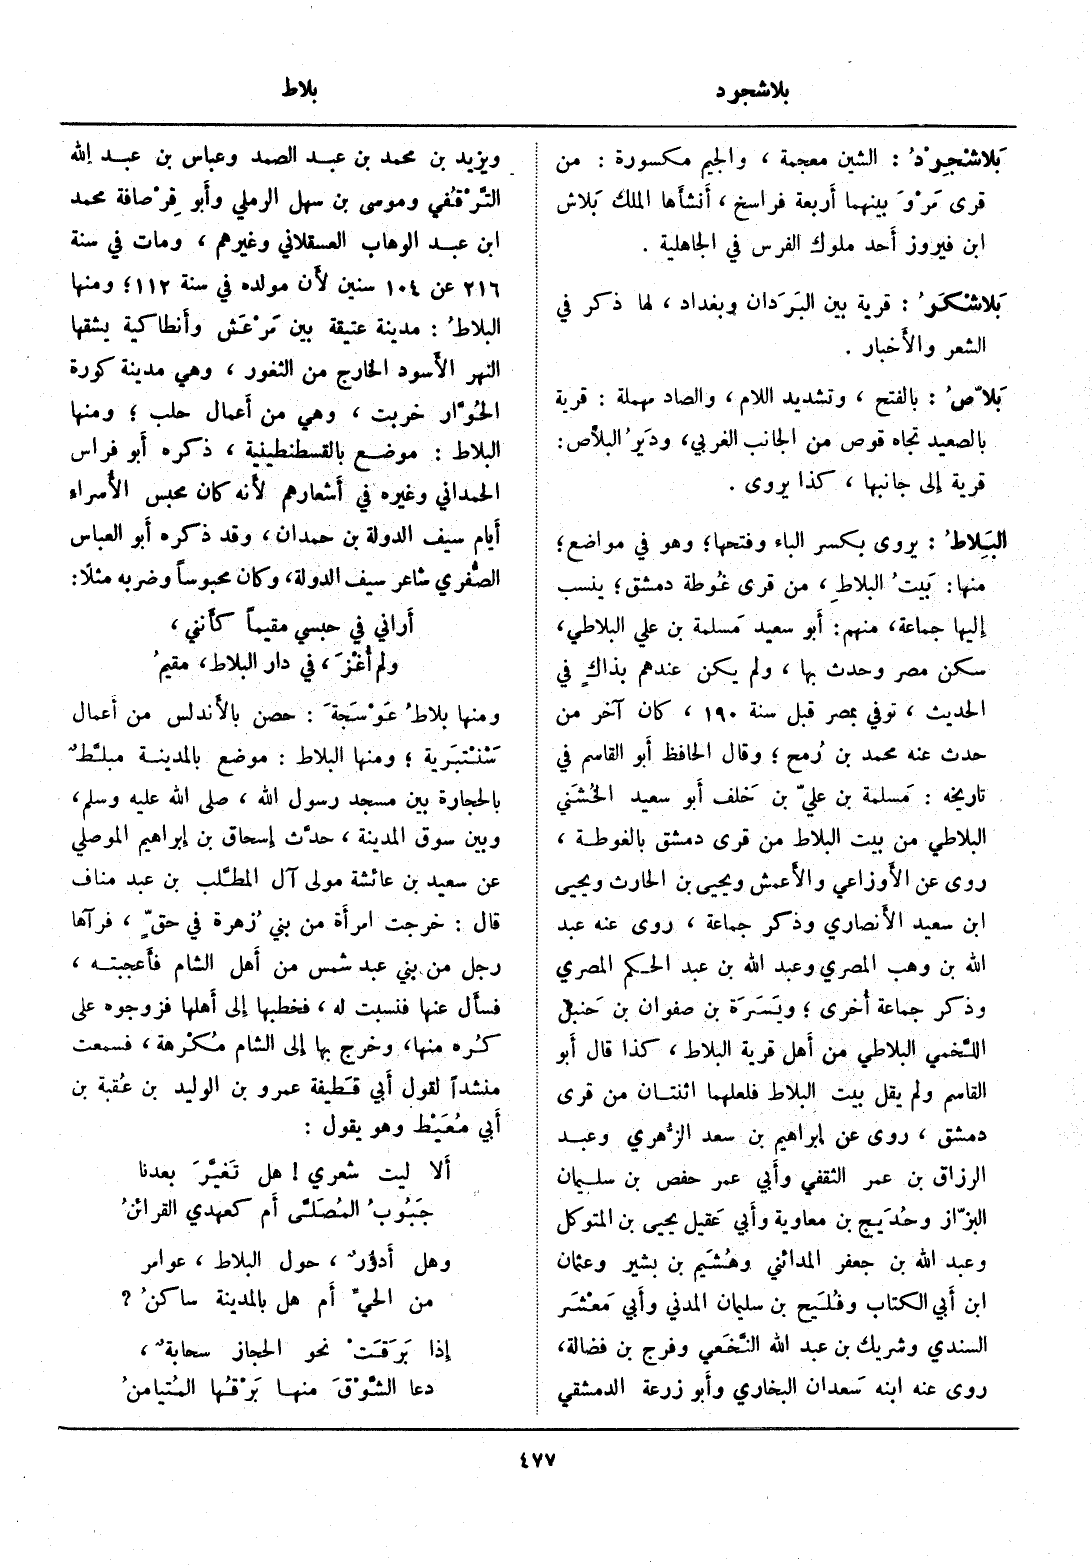 بلاشجرد
بلاط
بَلاشْجِرْدُ : الشين معجمة ، والجيم مكسورة : من
قرى مَرْوَ بينهما أربعة فراسخ ، أنشأها الملك بَلاش
ابن فيروز أحد ملوك الفرس في الجاهلية .
بَلاشْكَرُ : قرية بين البَرَدان وبغداد ، لها ذكر في
الشعر والأخبار .
بَلاّصُ : بالفتح ، وتشديد اللام ، والصاد مهملة : قرية
بالصعيد تجاه قوص من الجانب الغربي، ودَيرُ البلاّص:
قرية إلى جانبها ، كذا يروى .
البَلاطُ : يروى بكسر الباء وفتحها؛ وهو في مواضع؛
منها: بَيتُ البلاطِ ، من قرى غُوطة دمشق؛ ينسب
إليها جماعة، منهم: أبو سعيد مَسلمة بن علي البلاطي،
سكن مصر وحدث بها ، ولم يكن عندهم بذاك في
الحديث ، توفي بمصر قبل سنة ١٩٠ ، كان آخر من
حدث عنه محمد بن رُمح ؛ وقال الحافظ أبو القاسم في
تاريخه : مَسلمة بن عليّ بن خَلف أبو سعيد الخُشَني
البلاطي من بيت البلاط من قرى دمشق بالغوطة ،
روى عن الأوزاعي والأعمش ويحيى بن الحارث ويحيى
ابن سعيد الأنصاري وذكر جماعة ، روى عنه عبد
الله بن وهب المصري وعبد الله بن عبد الحكم المصري
وذكر جماعة أُخرى ؛ ويَسَرَة بن صفوان بن حَنبل
اللخمي البلاطي من أهل قرية البلاط ، كذا قال أبو
القاسم ولم يقل بيت البلاط فلعلهما اثنتان من قرى
دمشق ، روى عن إبراهيم بن سعد الزُّهري وعبد
الرزاق بن عمر الثقفي وأبي عمر حفص بن سليمان
البزّاز وحُدَيج بن معاوية وأبي عَقيل يحيى بن المتوكل
وعبد الله بن جعفر المدائني وهُشَيم بن بشير وعثمان
ابن أبي الكتاب وفُلَيح بن سليمان المدني وأبي مَعْشَر
السندي وشريك بن عبد الله النَّخَعي وفرج بن فضالة،
روى عنه ابنه سَعدان البخاري وأبو زرعة الدمشقي
ويزيد بن محمد بن عبد الصمد وعباس بن عبد الله
التَّرْقُفي وموسى بن سهل الرملي وأبو قِرْصافة محمد
ابن عبد الوهاب العسقلاني وغيرهم ، ومات في سنة
٢١٦ عن ١٠٤ سنين لأن مولده في سنة ١١٢؛ ومنها
البلاطُ : مدينة عتيقة بين مَرْعَش وأنطاكية يشقها
النهر الأسود الخارج من الثغور ، وهي مدينة كورة
الحُوّار خربت ، وهي من أعمال حلب ؛ ومنها
البلاط : موضع بالقسطنطينية ، ذكره أبو فراس
الحمداني وغيره في أشعارهم لأنه كان محبس الأُسراء
أيام سيف الدولة بن حمدان، وقد ذكره أبو العباس
الصُّفري شاعر سيف الدولة، وكان محبوساً وضربه مثلًا:
أراني في حبسي مقيماً كأنني ،
ولم أُغْزَ ، في دار البلاط، مقيمُ
ومنها بلاطُ عَوْسَجَةَ : حصن بالأندلس من أعمال
شَنْتَبَرية ؛ ومنها البلاط : موضع بالمدينة مبلَّطٌ
بالحجارة بين مسجد رسول الله ، صلى الله عليه وسلم،
وبين سوق المدينة ، حدَّث إسحاق بن إبراهيم الموصلي
عن سعيد بن عائشة مولى آل المطَّلب بن عبد مناف
قال : خرجت امرأة من بني زُهرة في حقٍّ ، فرآها
رجل من بني عبد شمس من أهل الشام فأعجبته ،
فسأل عنها فنسبت له ، فخطبها إلى أهلها فزوجوه على
كُره منها، وخرج بها إلى الشام مُكْرهة ، فسمعت
منشداً لقول أبي قَطيفة عمرو بن الوليد بن عُقبة بن
أبي مُعَيْط وهو يقول :
ألا ليت شعري ! هل تَغَيَّرَ بعدنا
جَبُوبُ المُصَلَّى أم كعهدي القرائنُ
وهل أدؤرٌ ، حول البلاط ، عوامر
من الحيّ أم هل بالمدينة ساكنُ ؟
إذا بَرَقَتْ نحو الحجاز سحابةٌ ،
دعا الشَّوْقَ منها بَرْقُها المُتيامنُ
٤٧٧